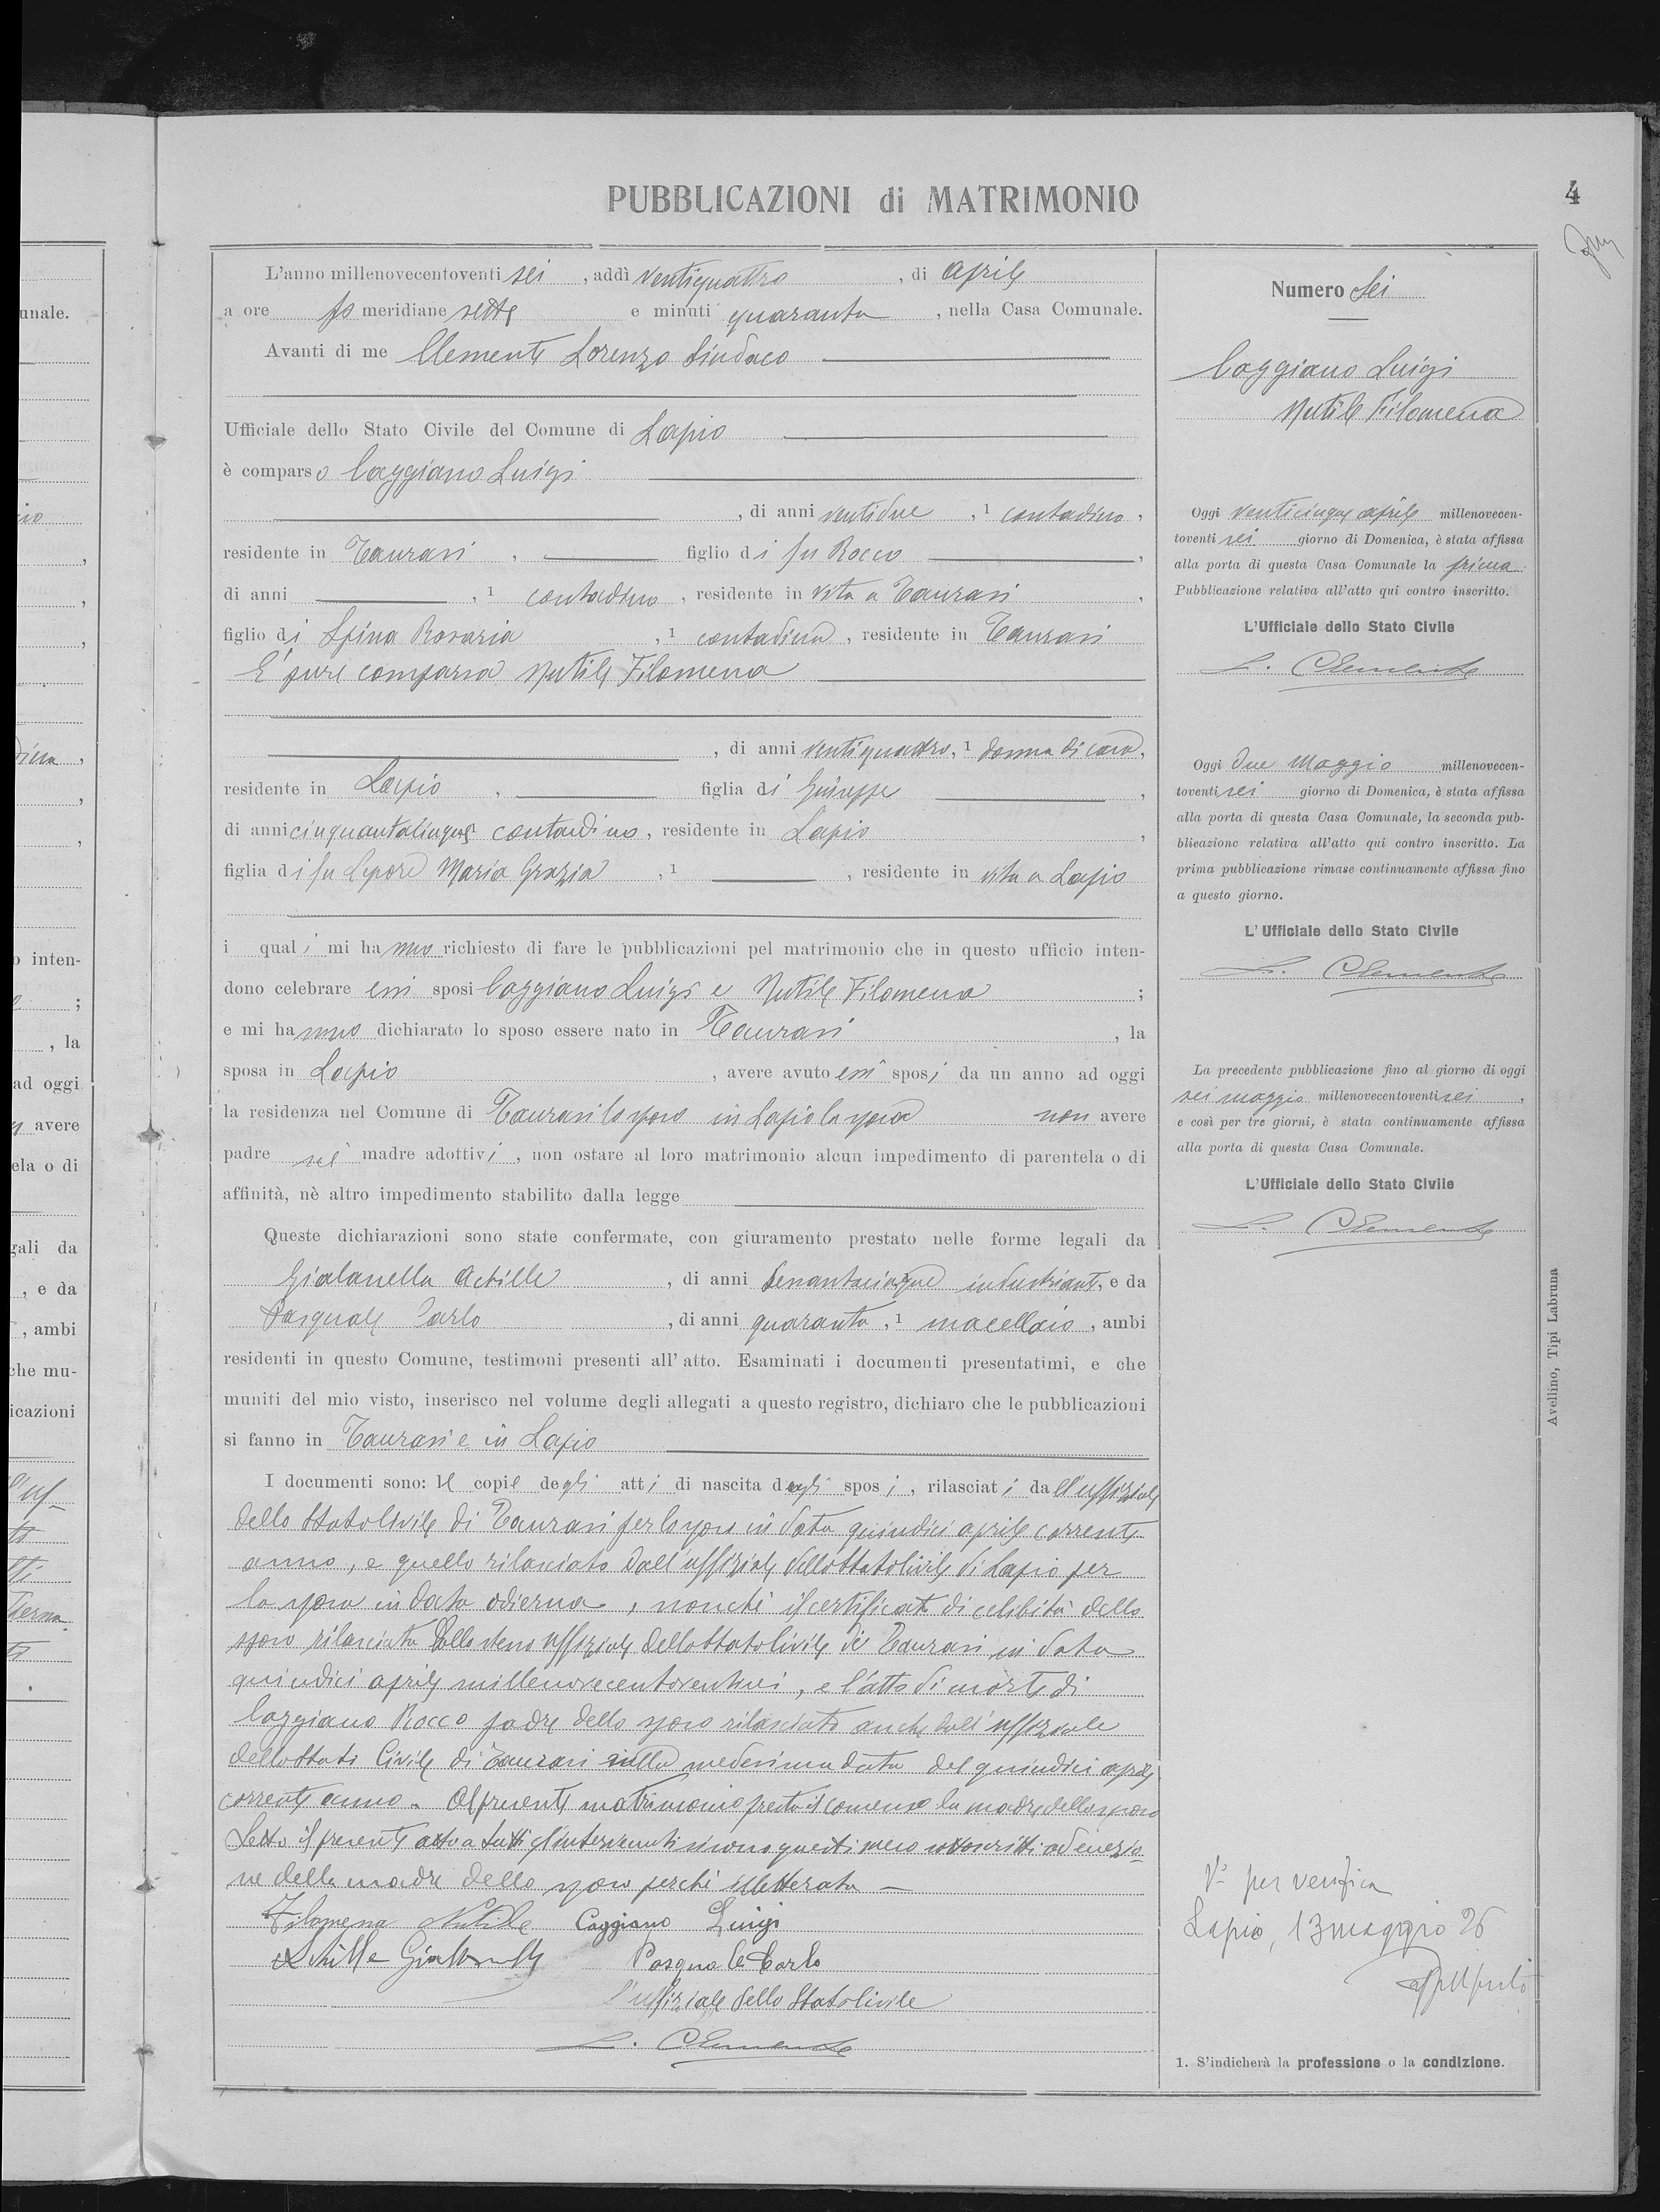 PUBBLICAZIONI di MATRIMONIO
4
L'anno millenovecentoventi sei, addì ventiquattro, di aprile
a ore po meridiane sette e minuti quaranta, nella Casa Comunale.
Avanti di me Clemente Lorenzo Sindaco
Ufficiale dello Stato Civile del Comune di Lapio
è comparso Caggiano Luigi
, di anni ventidue, 1 contadino,
residente in Taurasi, figlio di fu Rocco,
di anni , 1 contadino, residente in vita a Taurasi,
figlio di Spina Rosaria, 1 contadina, residente in Taurasi
E' pure comparsa Nutile Filomena
, di anni ventiquattro, 1 donna di casa,
residente in Lapio, figlia di Giuseppe,
di anni cinquantacinque contadino, residente in Lapio,
figlia di fu Lepore Maria Grazia, 1 , residente in vita a Lapio
i quali mi hanno richiesto di fare le pubblicazioni pel matrimonio che in questo ufficio inten-
dono celebrare essi sposi Caggiano Luigi e Nutile Filomena;
e mi hanno dichiarato lo sposo essere nato in Taurasi, la
sposa in Lapio, avere avuto essi sposi da un anno ad oggi
la residenza nel Comune di Taurasi lo sposo in Lapio la sposa non avere
padre nè madre adottivi, non ostare al loro matrimonio alcun impedimento di parentela o di
affinità, nè altro impedimento stabilito dalla legge
Queste dichiarazioni sono state confermate, con giuramento prestato nelle forme legali da
Gialanella Achille, di anni sessantacinque industriante, e da
Pasquale Carlo, di anni quaranta, 1 macellaio, ambi
residenti in questo Comune, testimoni presenti all'atto. Esaminati i documenti presentatimi, e che
muniti del mio visto, inserisco nel volume degli allegati a questo registro, dichiaro che le pubblicazioni
si fanno in Taurasi e in Lapio
I documenti sono: le copie degli atti di nascita degli sposi, rilasciati dall'uffiziale
dello Stato Civile di Taurasi per lo sposo in data quindici aprile corrente
anno, e quello rilasciato dall'uffiziale dello Stato Civile di Lapio per
la sposa in data odierna, nonchè il certificato di celibità dello
sposo rilasciato dallo stesso uffiziale dello Stato Civile di Taurasi in data
quindici aprile millenovecentoventisei, e l'atto di morte di
Caggiano Rocco padre dello sposo rilasciato anche dall'uffiziale
dello Stato Civile di Taurasi sulla medesima data del quindici aprile
corrente anno. Al presente matrimonio presta il consenso la madre dello sposo
Letto il presente atto a tutti gl'intervenuti si sono questi meco sottoscritti ad eccezio-
ne della madre dello sposo perchè illetterata
Filomena Nutile Caggiano Luigi
Achille Gialanella Pasquale Carlo
L'uffiziale dello Stato Civile
L. Clemente
Numero Sei
Caggiano Luigi
Nutile Filomena
Oggi venticinque aprile millenovecen-
toventi sei giorno di Domenica, è stata affissa
alla porta di questa Casa Comunale la prima
Pubblicazione relativa all'atto qui contro inscritto.
L'Ufficiale dello Stato Civile
L. Clemente
Oggi due Maggio millenovecen-
toventi sei giorno di Domenica, è stata affissa
alla porta di questa Casa Comunale, la seconda pub-
blicazione relativa all'atto qui contro inscritto. La
prima pubblicazione rimase continuamente affissa fino
a questo giorno.
L'Ufficiale dello Stato Civile
L. Clemente
La precedente pubblicazione fino al giorno di oggi
sei maggio millenovecentoventi sei,
e così per tre giorni, è stata continuamente affissa
alla porta di questa Casa Comunale.
L'Ufficiale dello Stato Civile
L. Clemente
Vo per verifica
Lapio, 13 maggio 26
1. S'indicherà la professione o la condizione.
Avellino, Tipi Labruna
unale.
o inten-
;
, la
ad oggi
avere
ela o di
gali da
, e da
, ambi
che mu-
icazioni